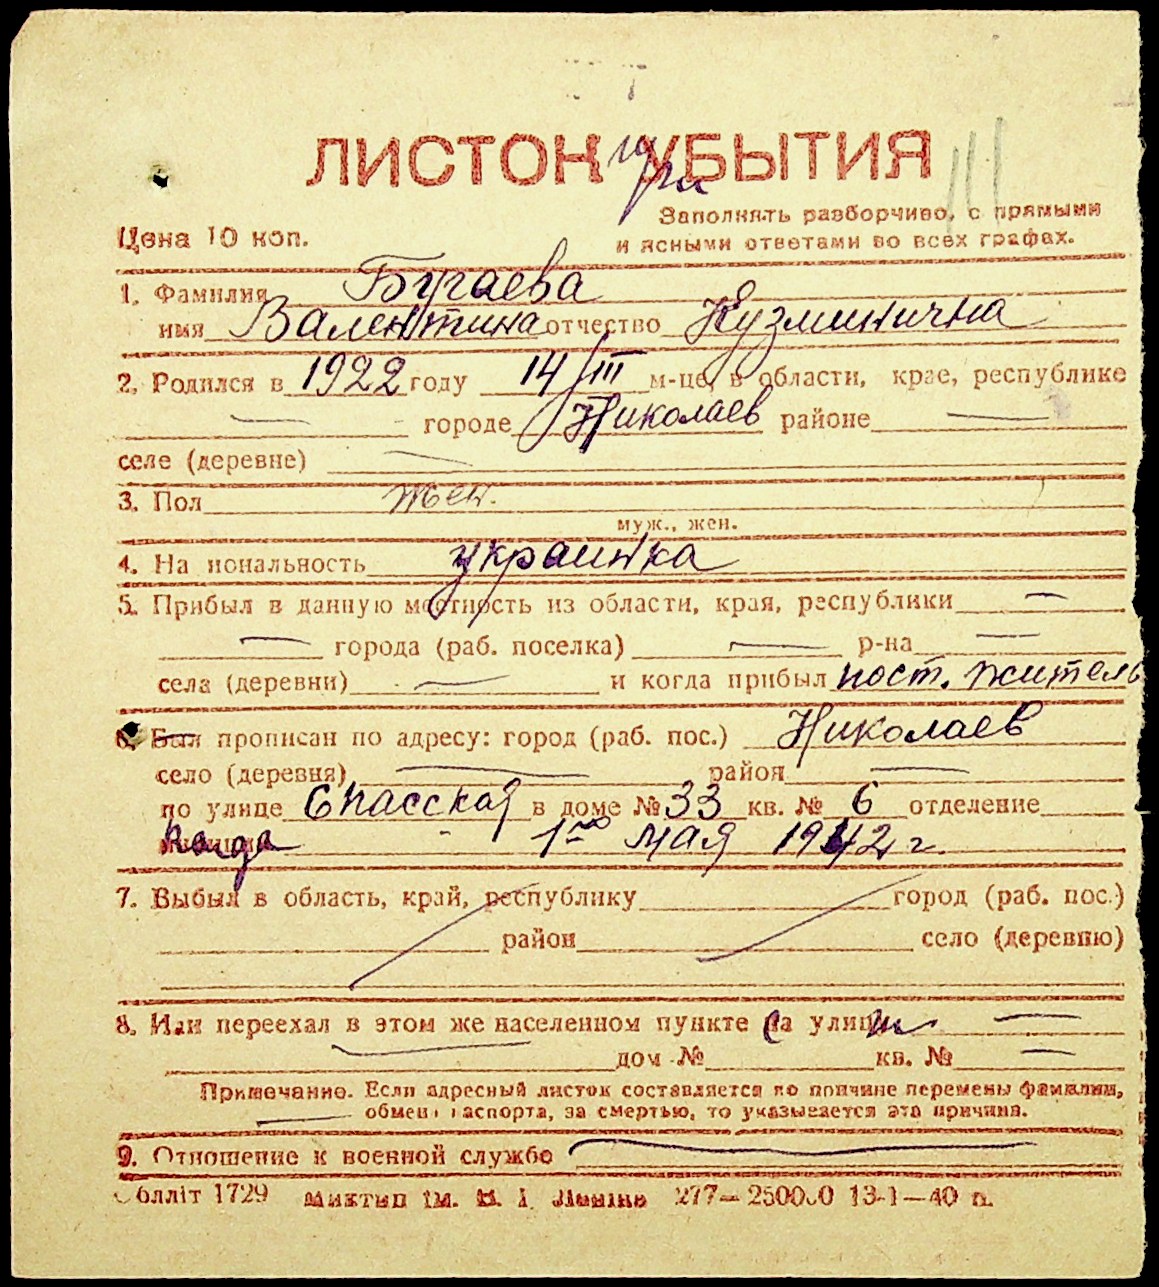 ЛИСТОК УБЫТИЯ
Заполнять разборчиво, с прямыми
Цена 10 коп.
и ясными ответами во всех графах.
1. Фамилия Бугаева
имя Валентина отчество Кузминична
2. Родился в 1922 году 14/III м-це, в области, крае, республике
— городе Николаев районе —
селе (деревне) —
3. Пол жен.
муж., жен.
4. Национальность украинка
5. Прибыл в данную местность из области, края, республики —
— города (раб. поселка) — р-на —
села (деревни) — и когда прибыл пост. житель
6. Был прописан по адресу: город (раб. пос.) Николаев
село (деревня) — район —
по улице Спасская в доме № 33 кв. № 6 отделение
1го мая 1942 г.
7. Выбыл в область, край, республику город (раб. пос.)
район село (деревню)
8. Или переехал в этом же населенном пункте с улицы —
— дом № кв. № —
Примечание. Если адресный листок составляется по причине перемены фамилии,
обмен паспорта, за смертью, то указывается эта причина.
9. Отношение к военной службе —
Обллiт 1729 Миктип iм. В. I. Ленiна 277—250000 13-1—40 п.